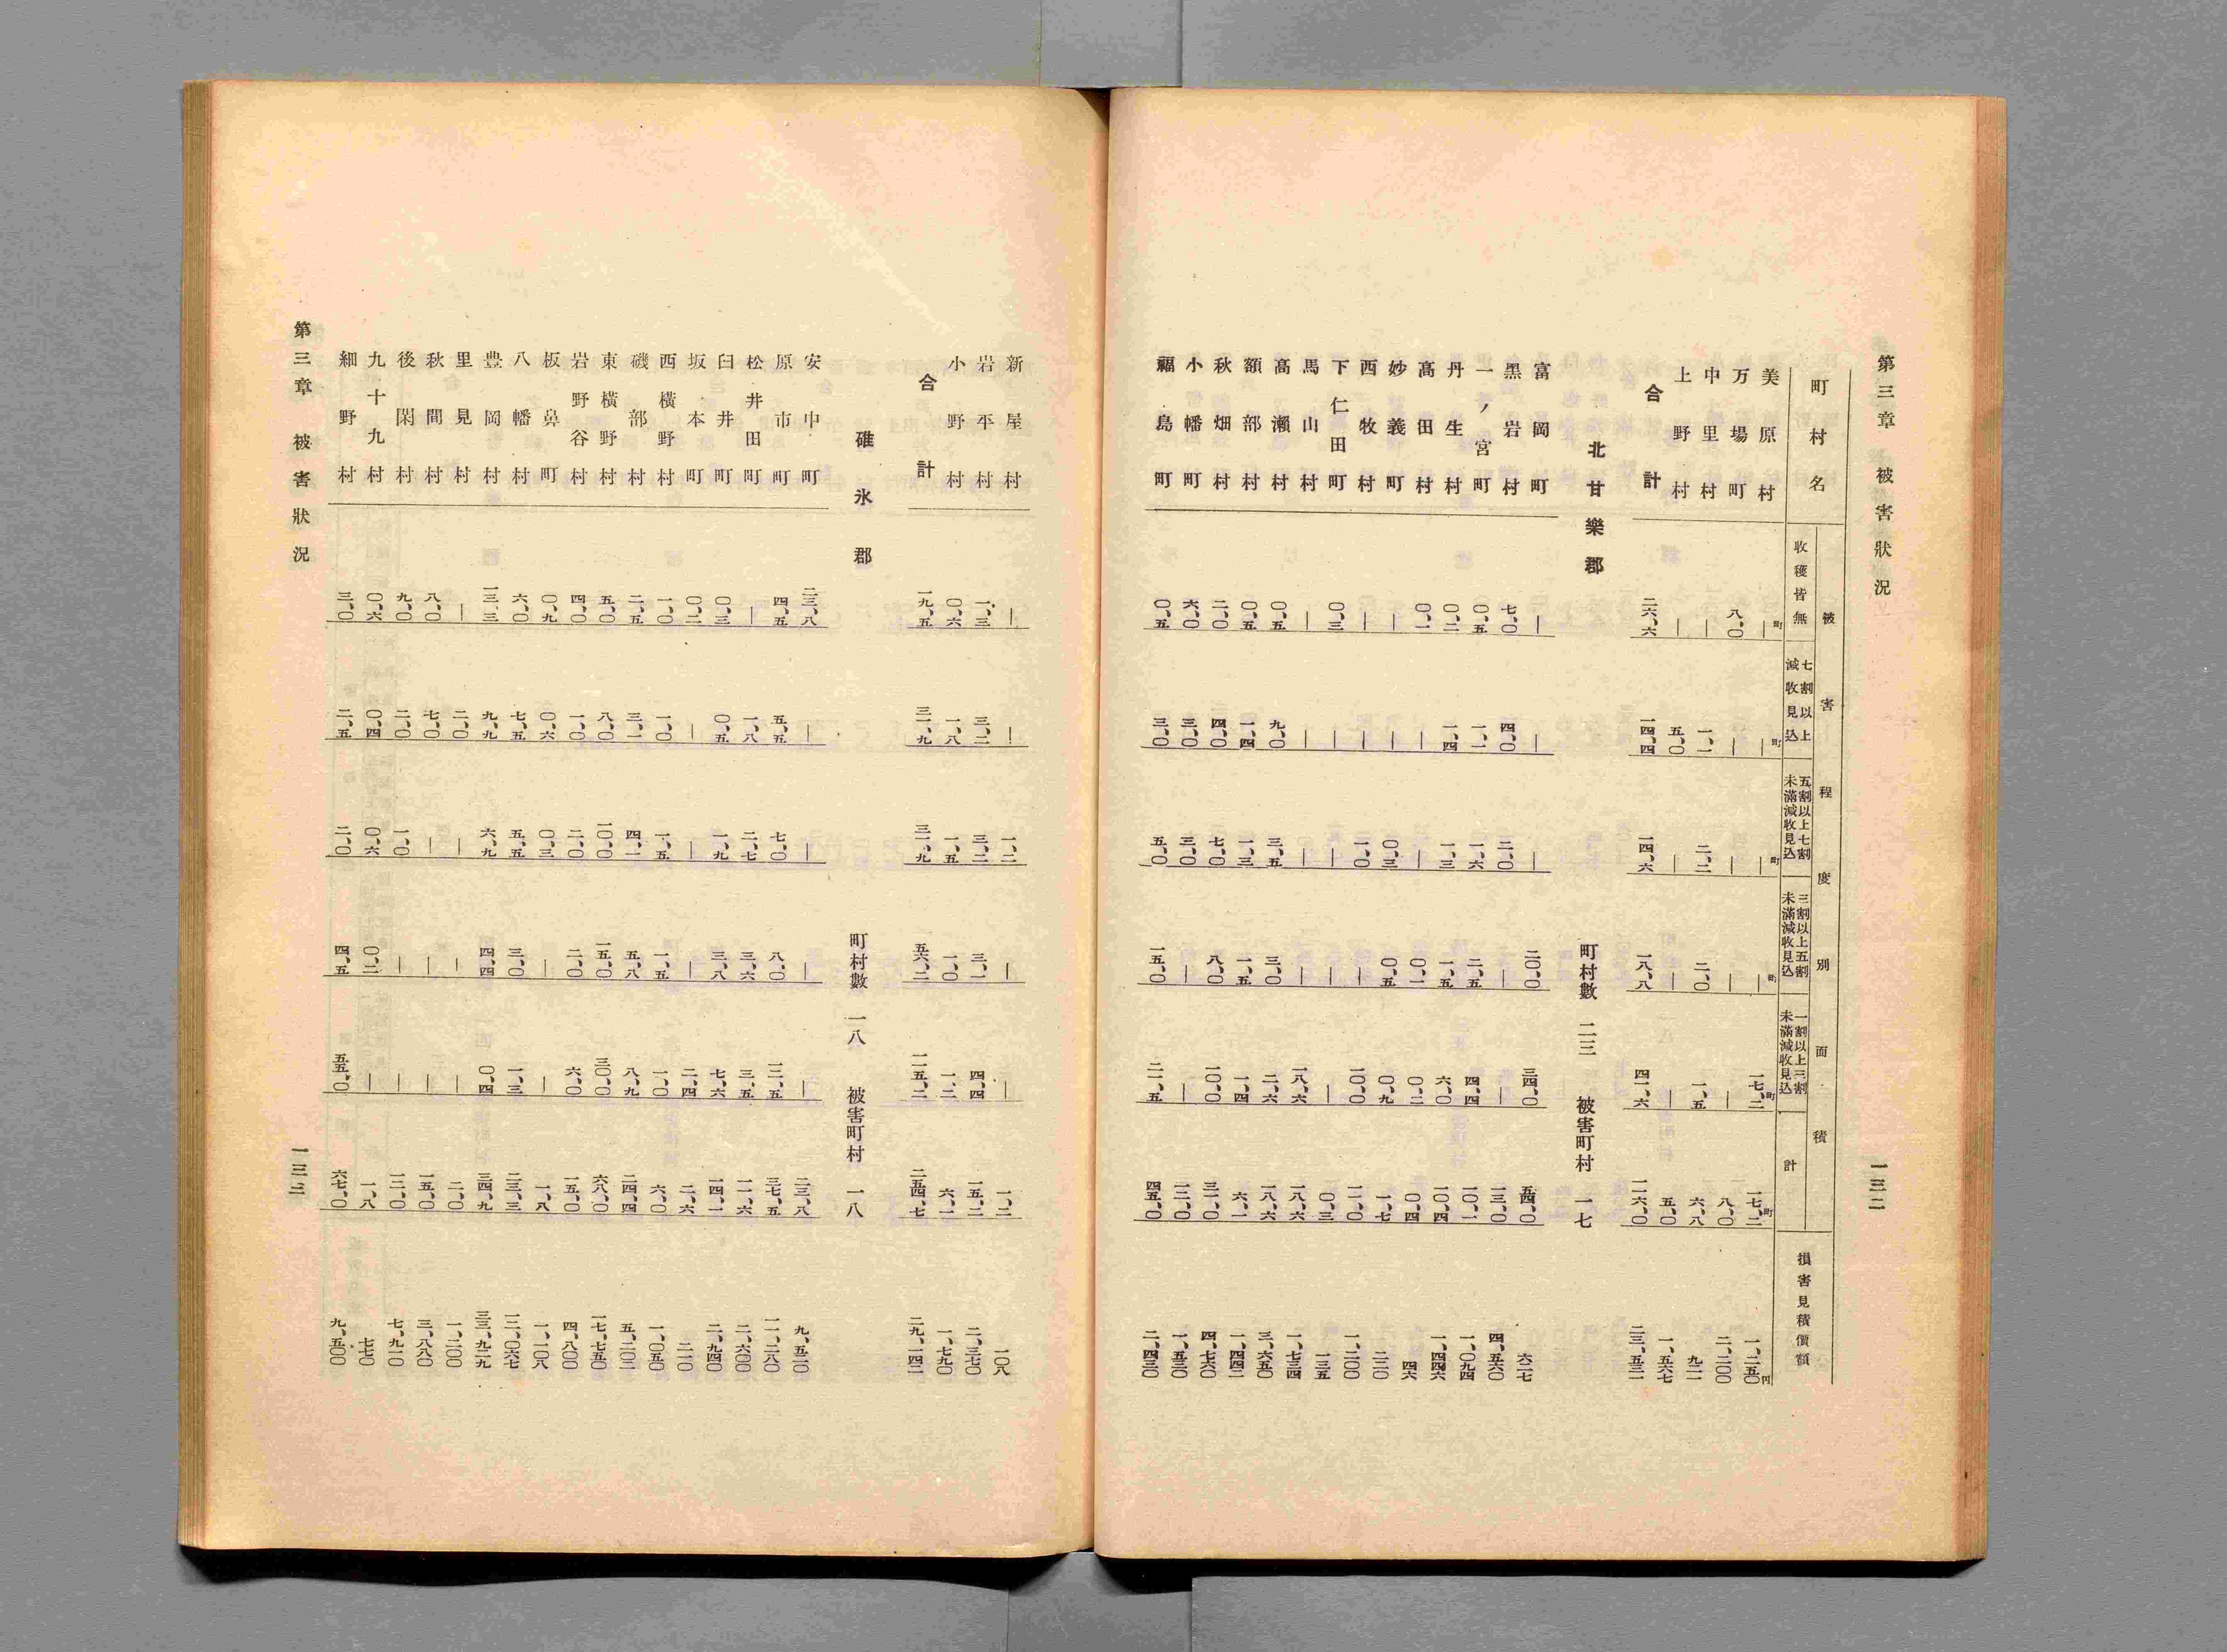 第三章 被害狀況 一三二
町村名
被害程度別面積
收穫皆無
七割以上減收見込
五割以上七割未滿減收見込
三割以上五割未滿減收見込
一割以上三割未滿減收見込
計
損害見積價額
町 町 町 町 町 町 円
美原村 ｜ ｜ ｜ ｜ 一七、二 一七、二 一、二五〇
万場町 八、〇 ｜ ｜ ｜ ｜ 八、〇 二、二〇〇
中里村 ｜ 一、一 二、二 二、〇 一、五 六、八 九二一
上野村 ｜ 五、〇 ｜ ｜ ｜ 五、〇 一、五六七
合計 二六、六 一四、四 一四、六 一八、八 四一、六 一一六、〇 二三、五三二
北甘樂郡 町村數 二三 被害町村 一七
富岡町 ｜ ｜ ｜ 二〇、〇 三四、〇 五四、〇 六二七
黑岩村 七、〇 四、〇 二、〇 ｜ 一三、〇 四、五六〇
一ノ宮町 〇、五 一、一 一、六 二、五 四、四 一〇、一 一、〇九四
丹生村 〇、二 一、四 一、三 一、五 六、〇 一〇、四 一、四四六
高田村 〇、一 ｜ 〇、一 〇、二 〇、四 四六
妙義町 ｜ ｜ 〇、三 〇、五 〇、九 一、七 二二〇
西牧村 ｜ ｜ 一、〇 ｜ 一〇、〇 一一、〇 一、二〇〇
下仁田町 〇、三 ｜ ｜ ｜ 〇、三 一三五
馬山村 ｜ ｜ ｜ ｜ 一八、六 一八、六 一、七三四
高瀨村 〇、五 九、〇 三、五 三、〇 二、六 一八、六 三、六五〇
額部村 〇、五 一、四 一、三 一、五 一、四 六、一 一、四四二
秋畑村 二、〇 四、〇 七、〇 八、〇 一〇、〇 三一、〇 四、七六〇
小幡町 六、〇 三、〇 三、〇 ｜ ｜ 一二、〇 一、五三〇
福島町 〇、五 三、〇 五、〇 一五、〇 二一、五 四五、〇 二、四三〇
新屋村 ｜ ｜ 一、二 ｜ ｜ 一、二 一〇八
岩平村 一、三 三、二 三、二 三、一 四、四 一五、二 二、三七〇
小野村 〇、六 一、八 一、五 一、〇 一、二 六、一 一、七九〇
合計 一九、五 三一、九 三一、九 五六、二 一一五、二 二五四、七 二九、一四二
碓氷郡 町村數 一八 被害町村 一八
安中町 二三、八 ｜ ｜ ｜ ｜ 二三、八 九、五二〇
原市町 四、五 五、五 七、〇 八、〇 一二、五 三七、五 一一、二八〇
松井田町 ｜ 一、八 二、七 三、六 三、五 一一、六 二、六〇〇
臼井町 〇、三 〇、五 一、九 三、八 七、六 一四、一 二、九四〇
坂本町 〇、二 ｜ ｜ ｜ 二、四 二、六 二一〇
西横野村 一、〇 一、〇 一、五 一、五 一、〇 六、〇 一、〇五〇
磯部村 二、五 三、一 四、一 五、八 八、九 二四、四 五、二〇二
東橫野村 五、〇 八、〇 一〇、〇 一五、〇 三〇、〇 六八、〇 一七、七五〇
岩野谷村 四、〇 一、〇 二、〇 二、〇 六、〇 一五、〇 四、八〇〇
板鼻町 〇、九 〇、六 〇、三 ｜ ｜ 一、八 一、一〇八
八幡村 六、〇 七、五 五、五 三、〇 一、三 二三、三 一二、〇六七
豊岡村 一三、三 九、九 六、九 四、四 〇、四 三四、九 三三、九二九
里見村 ｜ 二、〇 ｜ ｜ ｜ 二、〇 一、二〇〇
秋間村 八、〇 七、〇 ｜ ｜ ｜ 一五、〇 三、八八〇
後閑村 九、〇 二、〇 一、〇 ｜ ｜ 一二、〇 七、九一〇
九十九村 〇、六 〇、四 〇、六 〇、二 ｜ 一、八 七七〇
細野村 三、〇 二、五 二、〇 四、五 五五、〇 六七、〇 九、五〇〇
第三章 被害狀況 一三三